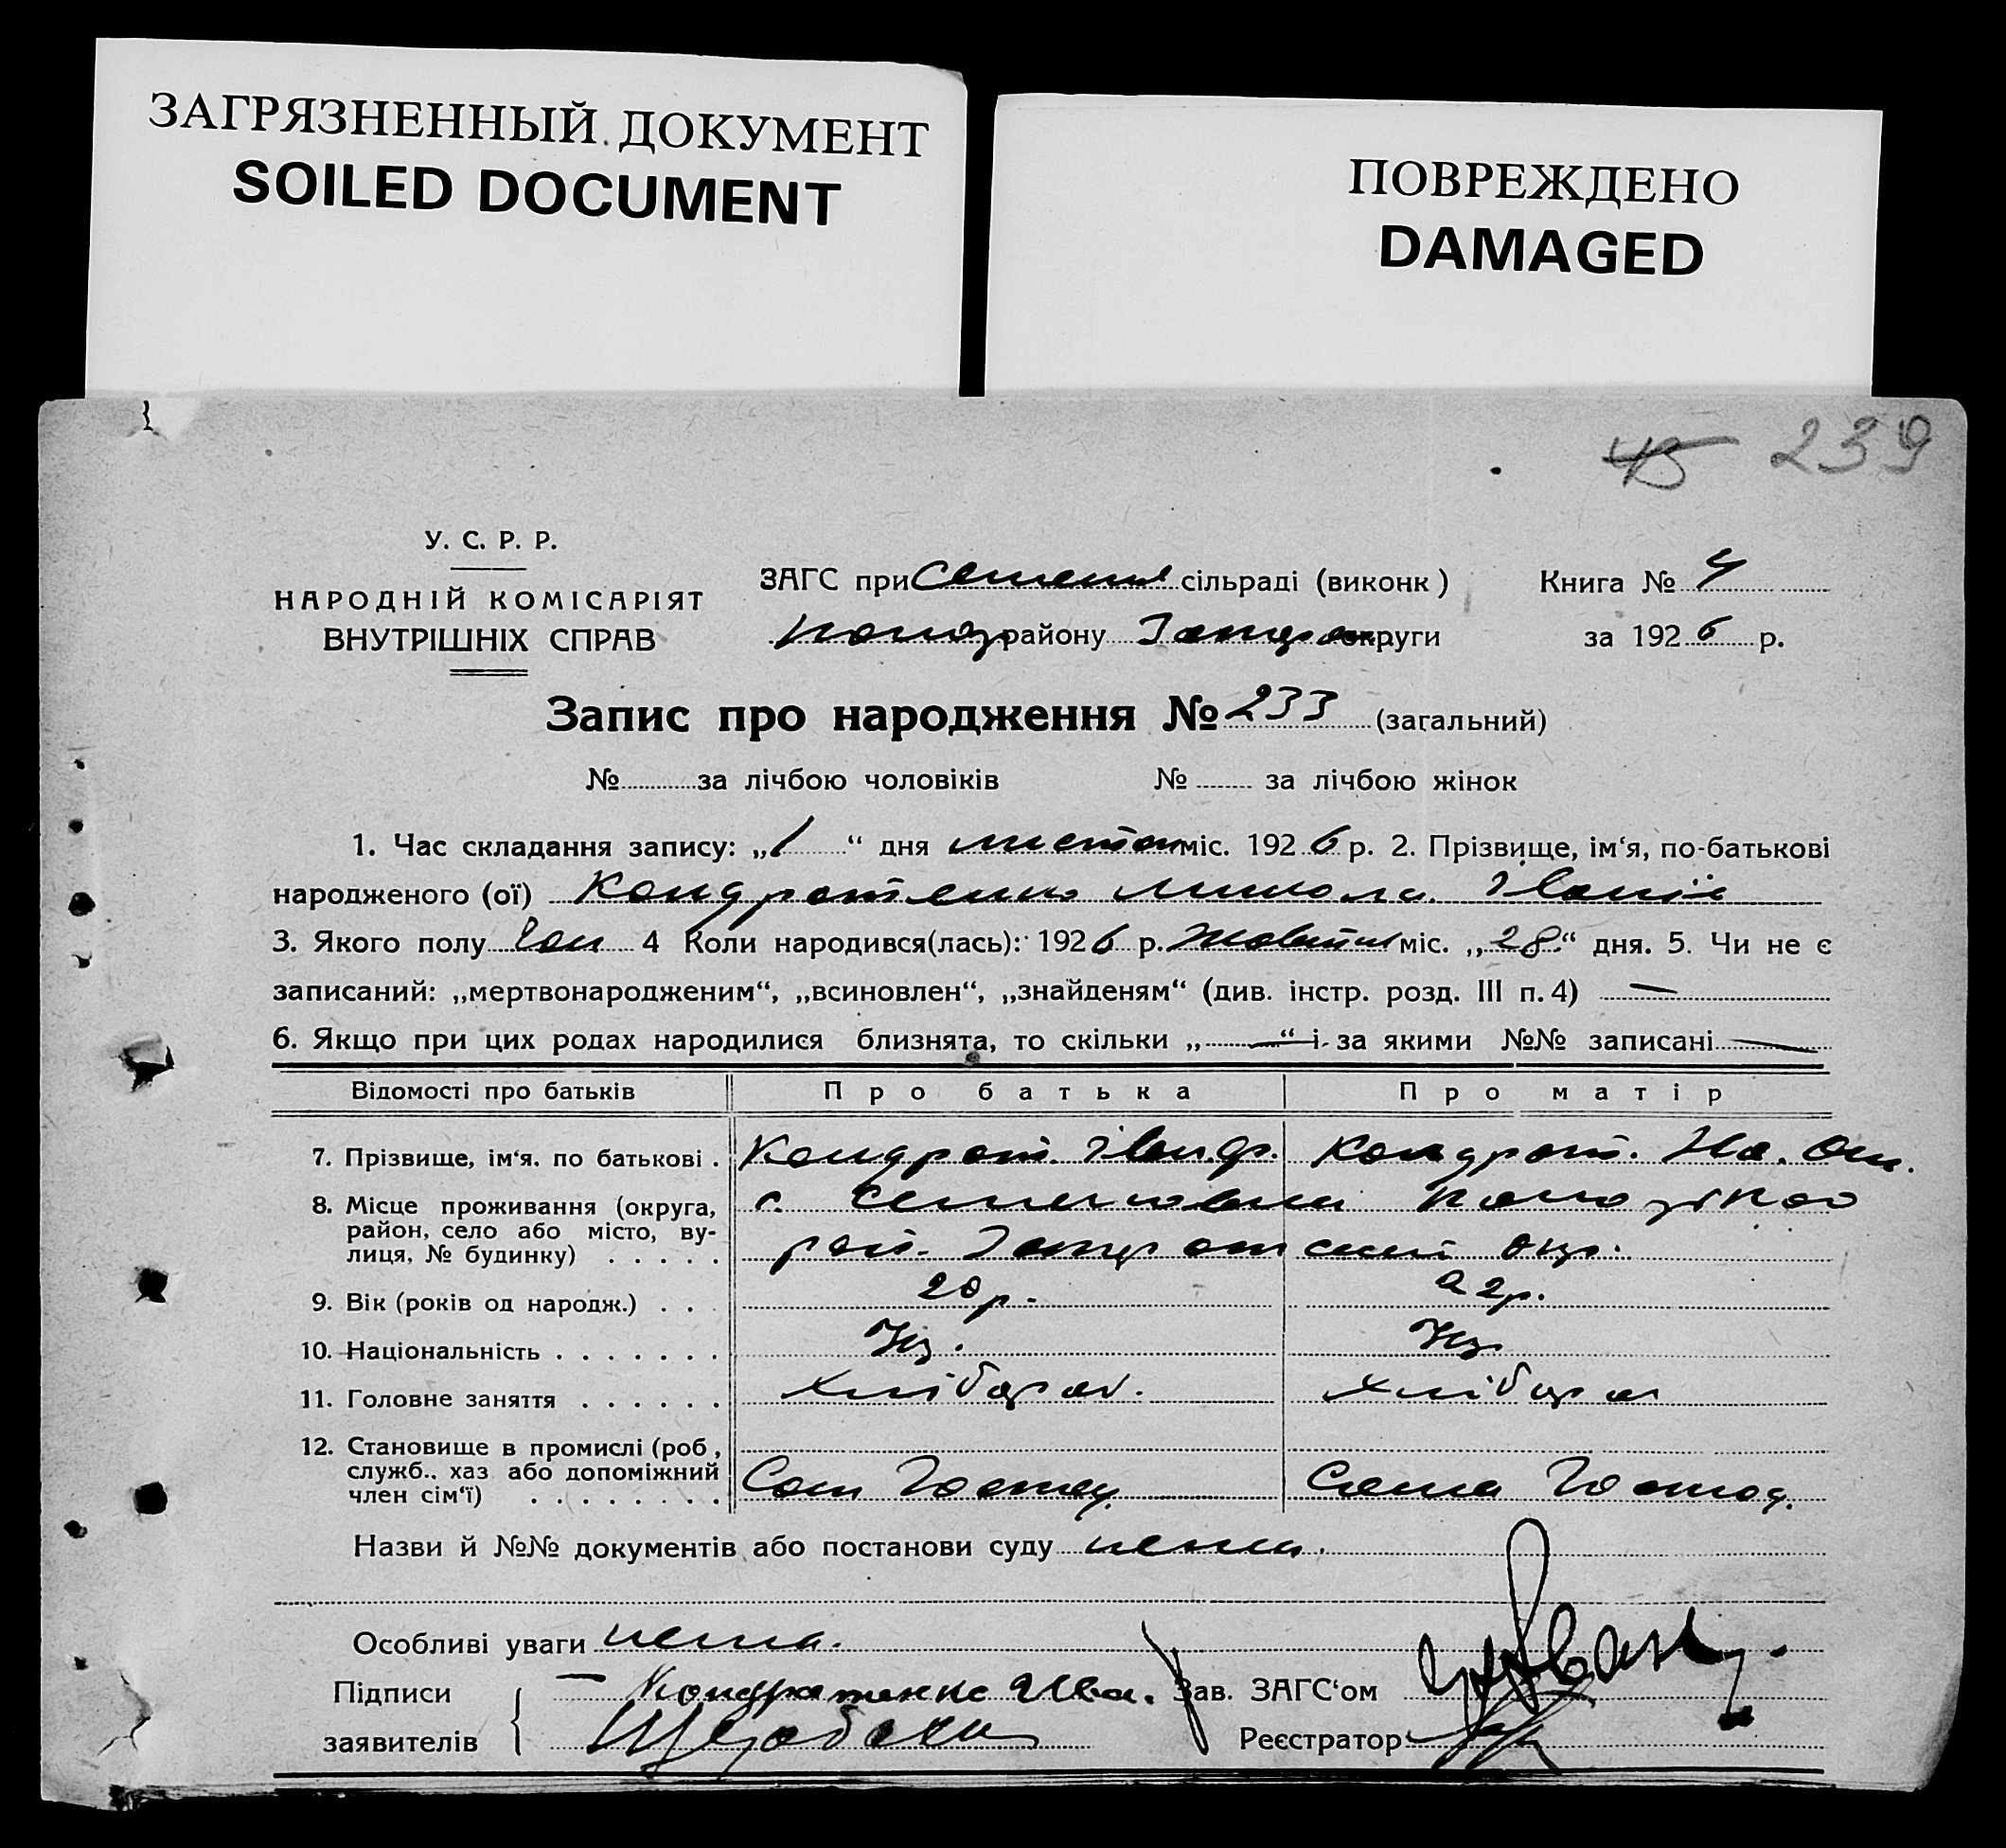 ЗАГРЯЗНЕННЫЙ ДОКУМЕНТ
SOILED DOCUMENT
ПОВРЕЖДЕНО
DAMAGED
45 239
У. С. Р. Р.
НАРОДНІЙ КОМІСАРІЯТ
ВНУТРІШНІХ СПРАВ
ЗАГС при сільраді (виконк)
району округи
Книга № 4
за 1926 р.
Запис про народження № 233 (загальний)
№ за лічбою чоловіків № за лічбою жінок
1. Час складання запису: „1“ дня листоп міс. 1926 р. 2. Прізвище, ім‘я, по-батькові
народженого (ої) Кондратенко Микола Іванів
3. Якого полу Чол 4 Коли народився(лась): 1926 р. Жовтня міс. „28“ дня. 5. Чи не є
записаний: „мертвонародженим“, „всиновлен“, „знайденям“ (див. інстр. розд. III п. 4) —
6. Якщо при цих родах народилися близнята, то скільки „—“ і за якими №№ записані —
Відомості про батьків Про батька Про матір
7. Прізвище, ім‘я, по батькові . Кондрат. Іван Кондрат.
8. Місце проживання (округа,
район, село або місто, ву-
лиця, № будинку) . . . . .
с.
рай. окр.
9. Вік (років од народж.) . . . 20 р. 22 р.
10. Національність . . . . . . . Ук. Ук.
11. Головне заняття . . . . . . Хлібороб. Хлібороб
12. Становище в промислі (роб,
служб., хаз або допоміжний
член сім‘ї) . . . . . . . .
Сам Господ. Сама Господ.
Назви й №№ документів або постанови суду нема.
Особливі уваги нема.
Підписи
заявителів
Кондратенко Ива.
Зав. ЗАГС‘ом
Реєстратор